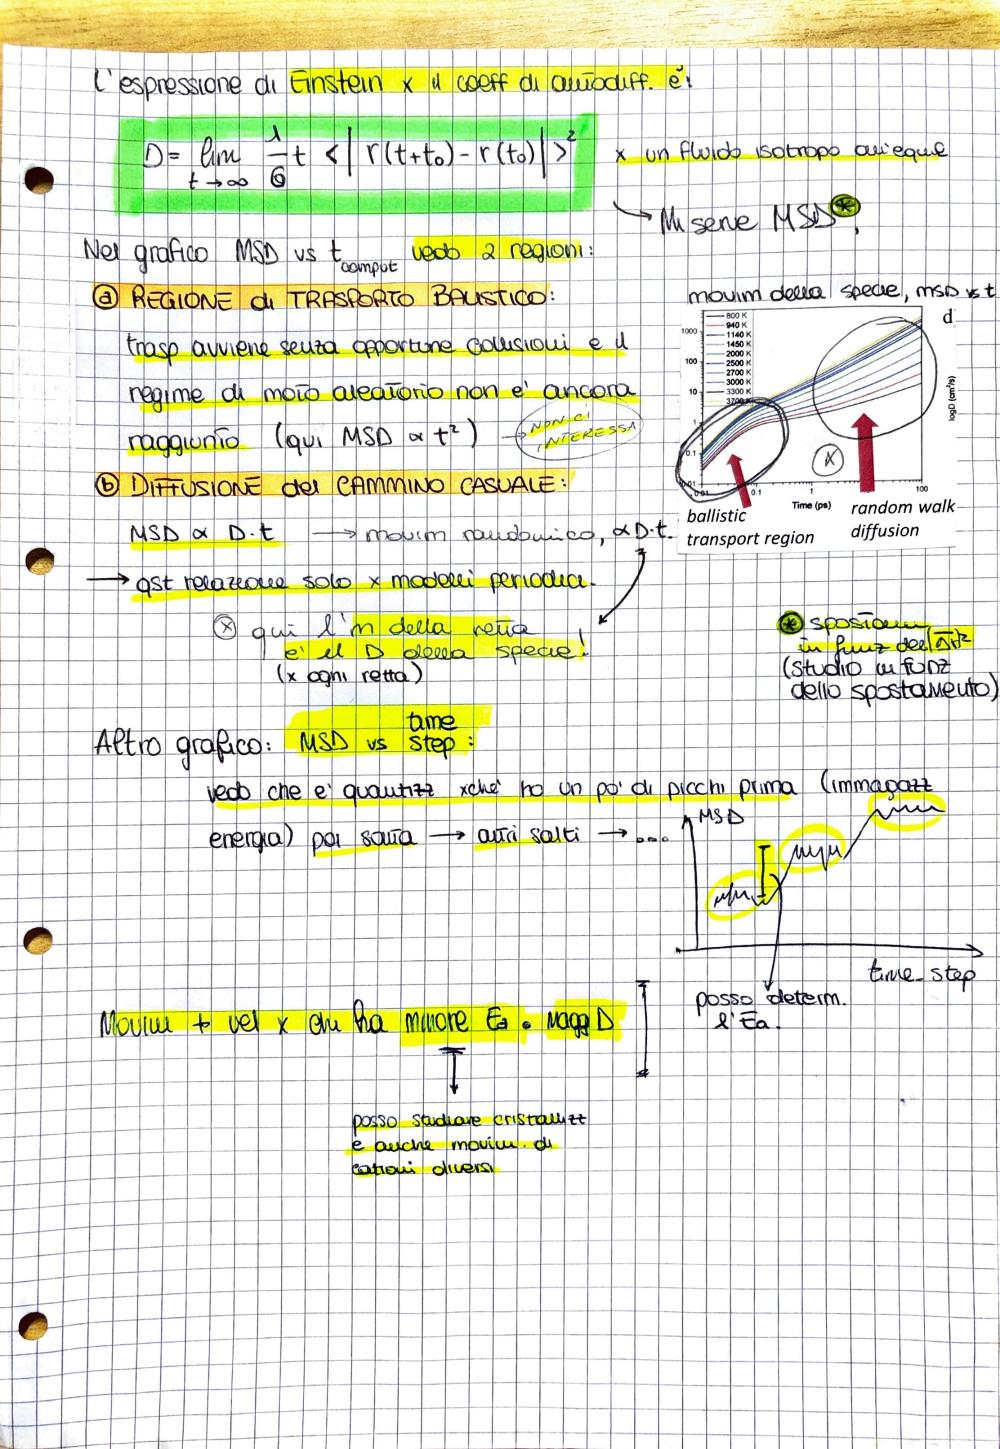 L'espressione di Einstein x il coeff di autodiff. è:
D = lim t→∞ 1/6 t < | r(t+t₀) - r(t₀) | >² x un fluido isotropo all'equil
→ Mi serve MSD *,
Nel grafico MSD vs t comput vedo 2 regioni:
a REGIONE di TRASPORTO BALISTICO:
trasp avviene senza opportune collisioni e il
regime di moto aleatorio non è ancora
raggiunto (qui MSD ∝ t²) → NON CI INTERESSA
movim della specie, MSD vs t
d
800 K
940 K
1140 K
1450 K
2000 K
2500 K
2700 K
3000 K
3300 K
3700 K
1000
100
10
1
0.1
0.01
0.01 0.1 1 100
Time (ps)
logD (cm²/s)
x
ballistic
transport region
random walk
diffusion
b DIFFUSIONE del CAMMINO CASUALE:
MSD ∝ D·t → movim randomico, ∝ D·t.
→ qst relazione solo x modelli periodici.
x qui l'm della retta
è il D della specie!
(x ogni retta)
* spostam
in funz del
(studio in funz
dello spostamento)
Altro grafico: MSD vs time step:
vedo che è quantizz xché ho un po' di picchi prima (immagazz
energia) poi salta → altri salti → ...
MSD
time step
posso determ.
l'Ea.
Movim + vel x chi ha minore Ea e magg D
posso studiare cristallizz
e anche movim. di
cationi diversi